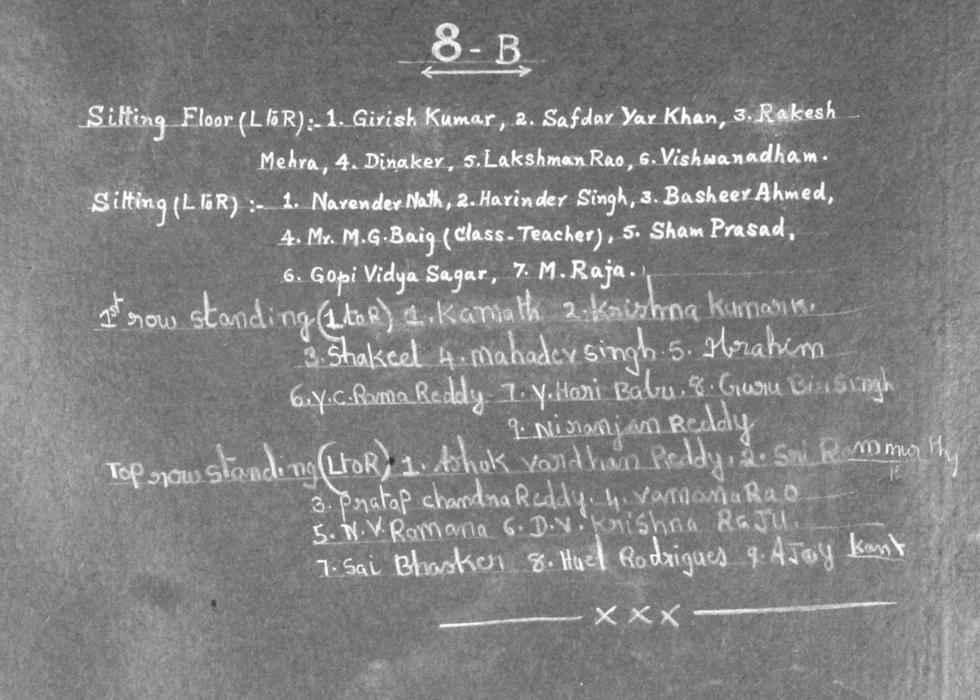 8 - B
Sitting Floor (L to R) :- 1. Girish Kumar, 2. Safdar Yar Khan, 3. Rakesh
Mehra, 4. Dinaker, 5. Lakshman Rao, 6. Vishwanadham.
Sitting (L to R) :- 1. Narender Nath, 2. Harinder Singh, 3. Basheer Ahmed,
4. Mr. M.G. Baig (Class-Teacher), 5. Sham Prasad,
6. Gopi Vidya Sagar, 7. M. Raja.
1st row standing (L to R) 1. Kamath 2. Krishna Kumar
3. Shakeel 4. Mahadev Singh. 5. Ibrahim
6. Y.C. Rama Reddy 7. Y. Hari Babu. 8. Guru Singh
9. Niranjan Reddy
Top row standing (L to R) 1. Ashok Vardhan Reddy. 2. Sri Rammurthy
3. Pratap Chandra Reddy. 4. Vamana Rao
5. N.V. Ramana 6. D.V. Krishna Raju.
7. Sai Bhasker 8. Huel Rodrigues 9. Ajay Kant
x x x